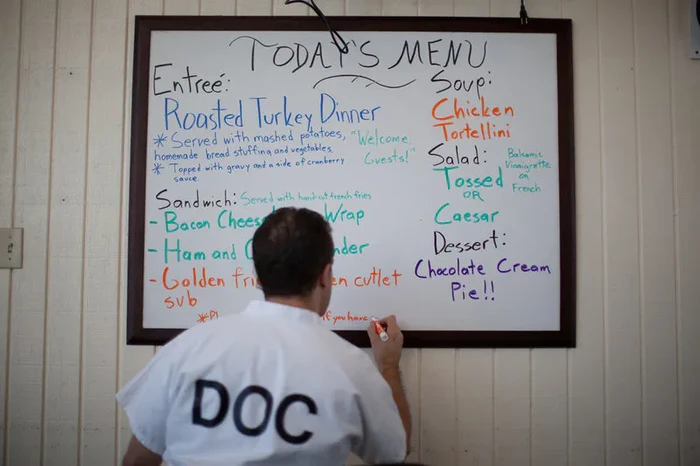 TODAY'S MENU
Entreé:
Roasted Turkey Dinner
* Served with mashed potatoes,
homemade bread stuffing and vegetables.
* Topped with gravy and a side of cranberry
sauce.
"Welcome
Guests!"
Sandwich: Served with hand cut french fries
- Bacon Wrap
- Ham and
- Golden cutlet
sub
if you have
Soup:
Chicken
Tortellini
Salad:
Tossed
OR
Caesar
Balsamic
Vinaigrette
or
French
Dessert:
Chocolate Cream
Pie!!
DOC